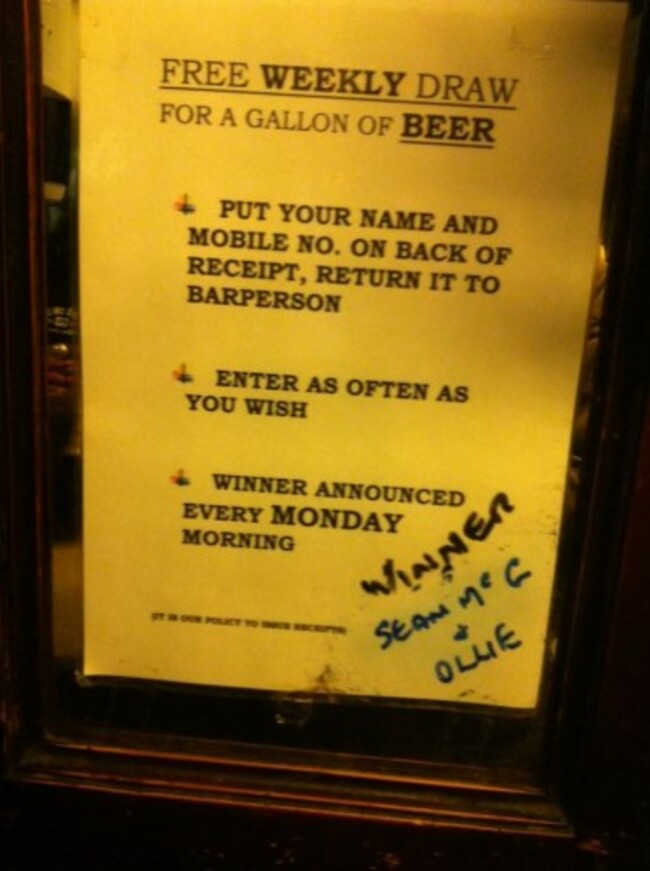 FREE WEEKLY DRAW
FOR A GALLON OF BEER
PUT YOUR NAME AND
MOBILE NO. ON BACK OF
RECEIPT, RETURN IT TO
BARPERSON
ENTER AS OFTEN AS
YOU WISH
WINNER ANNOUNCED
EVERY MONDAY
MORNING
(IT IS OUR POLICY TO ISSUE RECEIPTS)
WINNER
SEAN McG
&
OLLIE